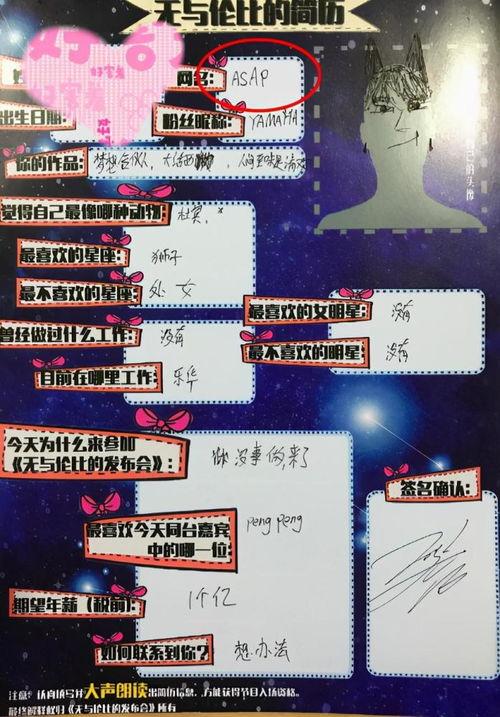 无与伦比的简历
网名: ASAP
出生日期:
粉丝昵称: YAMAHA
你的作品: 梦想合伙人, 大话西游, 人间至味是清欢
觉得自己最像哪种动物: 杜宾.
自己的头像
最喜欢的星座: 狮子
最不喜欢的星座: 处女
最喜欢的女明星: 没有
曾经做过什么工作: 没有
最不喜欢的明星: 没有
目前在哪里工作: 乐华
今天为什么来参加
《无与伦比的发布会》: 没事做,来了
签名确认:
最喜欢今天同台嘉宾
中的哪一位: peng peng
期望年薪(税前): 1个亿
如何联系到你? 想办法
注意: 认真填写并大声朗读出简历信息,方能获得节目入场资格。
最终解释权归《无与伦比的发布会》所有